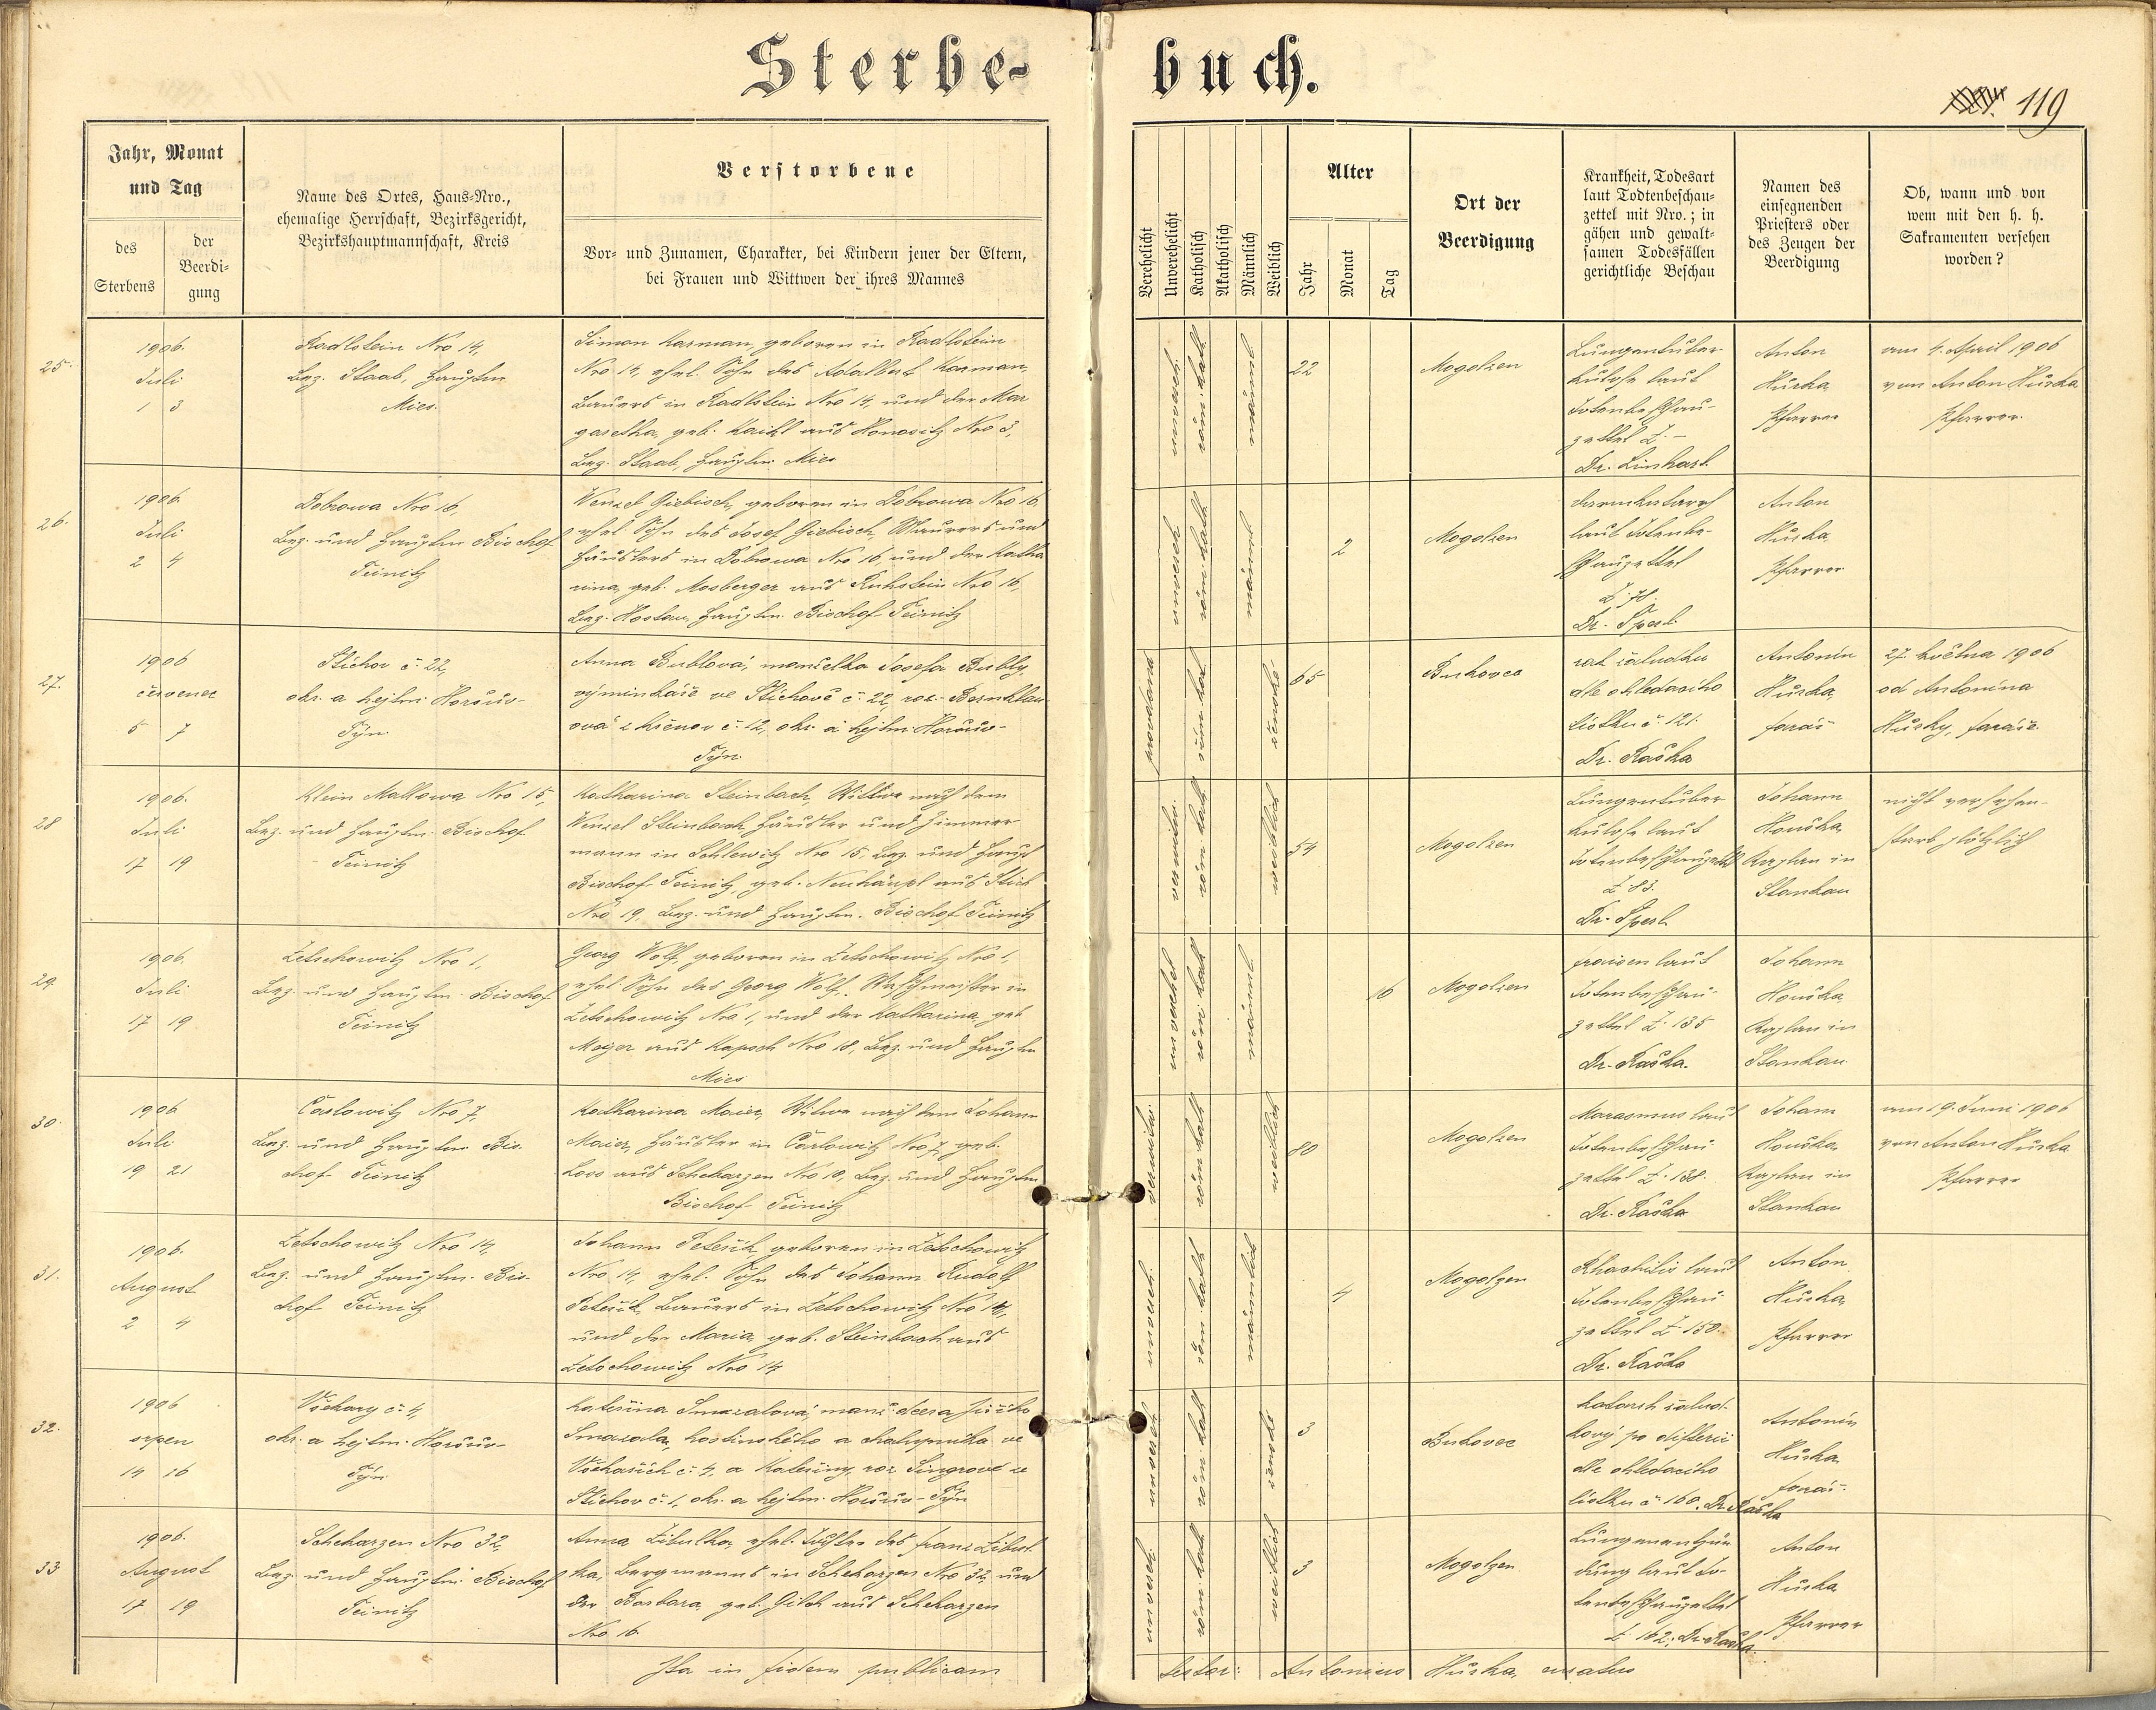 Sterbe-
buch.
119
Jahr, Monat
und Tag
des
Sterbens
der
Beerdi-
gung
Name des Ortes, Haus-Nro.,
ehemalige Herrschaft, Bezirksgericht,
Bezirkshauptmannschaft, Kreis
Verstorbene
Vor- und Zunamen, Charakter, bei Kindern jener der Eltern,
bei Frauen und Wittwen der ihres Mannes
Verehelicht
Unverehelicht
Katholisch
Akatholisch
Männlich
Weiblich
Alter
Jahr
Monat
Tag
Ort der
Beerdigung
Krankheit, Todesart
laut Todtenbeschau-
zettel mit Nro.; in
gähen und gewalt-
samen Todesfällen
gerichtliche Beschau
Namen des
einsegnenden
Priesters oder
des Zeugen der
Beerdigung
Ob, wann und von
wem mit den h. h.
Sakramenten versehen
worden?
25.
1906.
Juli
1 3
Radlstein Nro 14,
Bez. Staab, Hauptm.
Mies.
Simon Karman, geboren in Radlstein
Nro 14, ehel. Sohn des Adalbert Karman,
Bauers in Radlstein Nro 14, und der Mar
garetha, geb. aus Honositz Nro 3,
Bez. Staab, Hauptm. Mies
unvereh.
röm. kath.
männl.
22
Mogolzen
Lungentuber-
kulose laut
Totenbeschau-
zettel Z. –
Dr. Linhart.
Anton
Hurka,
Pfarrer
am 4. April 1906
von Anton Hurka
Pfarrer.
26.
1906.
Juli
2 4
Dobrowa Nro 16,
Bez. und Hauptm. Bischof
Teinitz
Wenzel Giebisch, geboren in Dobrowa Nro 16
ehel. Sohn des Josef Giebisch, Maurers und
Häuslers in Dobrowa Nro 16, und der Katha
rina, geb. Mosberger aus Ruhstein Nro 16,
Bez. Hostau, Hauptm. Bischof-Teinitz
unvereh
röm. kath
männl
2
Mogolzen
Darmkatarrh
laut Totenbe-
schauzettel
Z. 78.
Dr. Sperl.
Anton
Hurka,
Pfarrer
27.
1906
červenec
5 7
Stichov č. 22,
okr. a hejtm. Horšův-
Týn
Anna Bublová, manželka Josefa Bubly,
výminkáře ve Stichově č. 22, roz.
ová z Křenov č. 12, okr. a hejtm. Horšův-
Týn.
provdaná
řím. kat.
ženské
65
Bukovec
rak žaludku
dle ohledacího
lístku č. 121.
Dr. Raška
Antonín
Hurka,
farář
27. května 1906
od Antonína
Hurky, faráře.
28
1906.
Juli
17 19
Klein Mallowa Nro 15,
Bez. und Hauptm. Bischof
Teinitz
Katharina Steinbach, Wittwe nach dem
Wenzel Steinbach, Häusler und Zimmer
mann in Schlewitz Nro 15, Bez. und Haupt
Bischof-Teinitz, geb. Neuhäupl aus Stich
Nro 19, Bez. und Hauptm. Bischof Teinitz
verwitw.
röm. kath
weiblich
54
Mogolzen
Lungentuber
kulose laut
Totenbeschauzettel
Z 83.
Dr. Sperl.
Johann
Houška,
Kaplan in
Stankau
nicht versehen-
starb plötzlich
29.
1906.
Juli
17 19
Zetschowitz Nro 1,
Bez. und Hauptm. Bischof
Teinitz
Georg Wolf, geboren in Zetschowitz Nro 1,
ehel. Sohn des Georg Wolf, in
Zetschowitz Nro 1, und der Katharina, geb.
Meyer aus Kapsch Nro 18, Bez. und Hauptm
Mies
unverehel
röm. kath
männl.
16
Mogolzen
Fraisen laut
Totenbeschau-
zettel Z. 135
Dr. Raška.
Johann
Houška
Kaplan in
Stankau
30.
1906
Juli
19 21
Čarlowitz Nro 7,
Bez. und Hauptm. Bis-
chof Teinitz
Katharina Maier, Witwe nach dem Johann
Maier, Häusler in Čarlowitz Nro 7, geb.
Loos aus Schekarzen Nro 18, Bez. und Hauptm
Bischof Teinitz
verwitw.
röm. kath
weiblich
80
Mogolzen
Marasmus laut
Totenbeschau
zettel Z. 138.
Dr. Raška
Johann
Houška,
Kaplan in
Stankau
am 19. Juni 1906
von Anton Hurka
Pfarrer
31.
1906.
August
2 4
Zetschowitz Nro 14,
Bez. und Hauptm. Bis-
chof Teinitz
Johann Peteřík, geboren in Zetschowitz
Nro 14, ehel. Sohn des Johann Rudolf
Peteřík, Bauers in Zetschowitz Nro 14,
und der Maria, geb. Steinbach aus
Zetschowitz Nro 14
unvereh.
röm. kath
männlich
4
Mogolzen
Rhachitis laut
Totenbeschau
zettel Z. 150.
Dr. Raška
Anton
Hurka,
Pfarrer
32.
1906
srpen
14 16
Všekary č. 4,
okr. a hejtm. Horšův-
Týn
Kateřina Smazalová, manž. dcera Jiřího
Smazala, hostinského a chalupníka ve
Všekařích č. 4, a Kateřiny, roz. Singrové ze
Stichov č. 1, okr. a hejtm. Horšův-Týn
röm. kath
ženské
3
Bukovec
katarrh žalud-
kový po difterii
dle ohledacího
lístku č. 160. Dr. Raška
Antonín
Hurka
farář.
33
1906.
August
17 19
Schekarzen Nro 32,
Bez. und Hauptm. Bischof
Teinitz
Anna Zibulka, ehel. Tochter des Franz Zibul
ka, Bergmanns in Schekarzen Nro 32, und
der Barbara, geb. Gilch aus Schekarzen
Nro 16.
unvereh.
röm. kath
weiblich
3
Mogolzen
Lungenentzün
dung laut To-
tenbeschauzettel
Z. 162. Dr. Raška.
Anton
Hurka
Pfarrer
Ita in fidem publicam
testor: Antonius Hurka, curatus